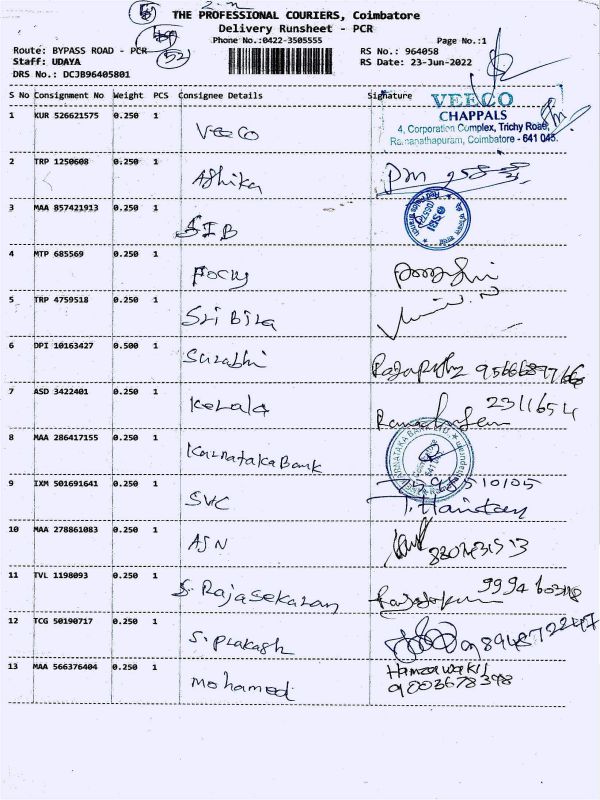 2-n
THE PROFESSIONAL COURIERS, Coimbatore
Delivery Runsheet - PCR
Phone No.:0422-3505555
Page No.:1
Route: BYPASS ROAD - PCR
Staff: UDAYA
DRS No.: DCJB96405801
52
RS No.: 964058
RS Date: 23-Jun-2022
S No Consignment No Weight PCS Consignee Details Signature
1 KUR 526621575 0.250 1 VEECO
VEECO
CHAPPALS
4, Corporation Complex, Trichy Road,
Ramanathapuram, Coimbatore - 641 045.
2 TRP 1250608 0.250 1 Ashika
3 MAA 857421913 0.250 1 SIB
4 MTP 685569 0.250 1 Pocky
5 TRP 4759518 0.250 1 Sri Bira
6 DPI 10163427 0.500 1 Surabhi
7 ASD 3422401 0.250 1 Kerala 2311654
8 MAA 286417155 0.250 1 Karnataka Bank
9 IXM 501691641 0.250 1 SVC
10 MAA 278861083 0.250 1 AJN
11 TVL 1198093 0.250 1 S. Rajasekaran
12 TCG 50190717 0.250 1 S. Prakash
13 MAA 566376404 0.250 1 Mohamed
9003678398